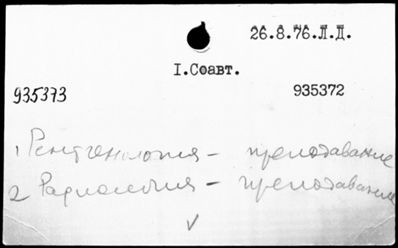 26.8.76.Л.Д.
I.Соавт.
935373
935372
1 Рентгенология – преподавание
2 Радиология – преподавание